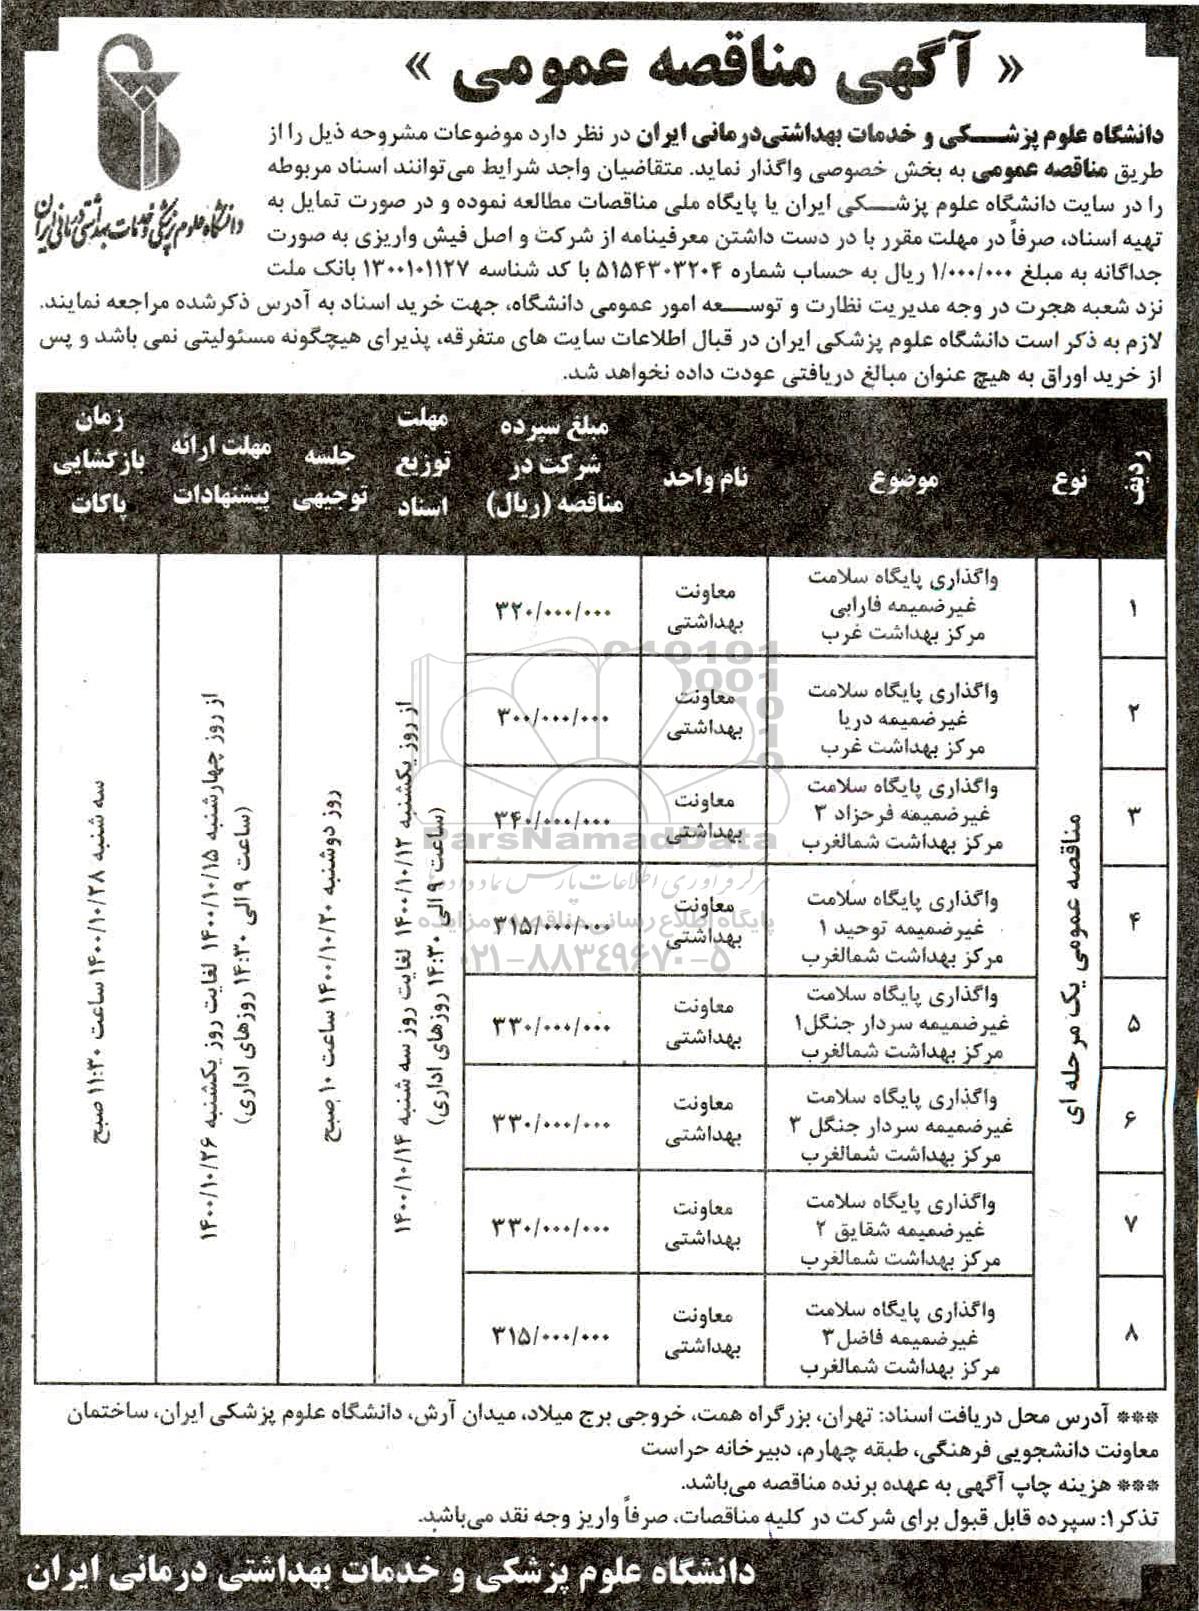 « آگهی مناقصه عمومی »
دانشگاه علوم پزشکی و خدمات بهداشتی درمانی ایران
دانشگاه علوم پزشکی و خدمات بهداشتی‌درمانی ایران در نظر دارد موضوعات مشروحه ذیل را از
طریق مناقصه عمومی به بخش خصوصی واگذار نماید. متقاضیان واجد شرایط می‌توانند اسناد مربوطه
را در سایت دانشگاه علوم پزشکی ایران یا پایگاه ملی مناقصات مطالعه نموده و در صورت تمایل به
تهیه اسناد، صرفاً در مهلت مقرر با در دست داشتن معرفینامه از شرکت و اصل فیش واریزی به صورت
جداگانه به مبلغ ۱/۰۰۰/۰۰۰ ریال به حساب شماره ۵۱۵۴۳۰۳۲۰۴ با کد شناسه ۱۳۰۰۱۰۱۱۲۷ بانک ملت
نزد شعبه هجرت در وجه مدیریت نظارت و توسعه امور عمومی دانشگاه، جهت خرید اسناد به آدرس ذکرشده مراجعه نمایند.
لازم به ذکر است دانشگاه علوم پزشکی ایران در قبال اطلاعات سایت های متفرقه، پذیرای هیچگونه مسئولیتی نمی باشد و پس
از خرید اوراق به هیچ عنوان مبالغ دریافتی عودت داده نخواهد شد.
ردیف
نوع
موضوع
نام واحد
مبلغ سپرده
شرکت در
مناقصه (ریال)
مهلت
توزیع
اسناد
جلسه
توجیهی
مهلت ارائه
پیشنهادات
زمان
بازکشایی
پاکات
مناقصه عمومی یک مرحله ای
۱
واگذاری پایگاه سلامت
غیرضمیمه فارابی
مرکز بهداشت غرب
معاونت
بهداشتی
۳۲۰/۰۰۰/۰۰۰
۲
واگذاری پایگاه سلامت
غیرضمیمه دریا
مرکز بهداشت غرب
معاونت
بهداشتی
۳۰۰/۰۰۰/۰۰۰
۳
واگذاری پایگاه سلامت
غیرضمیمه فرحزاد ۳
مرکز بهداشت شمالغرب
معاونت
بهداشتی
۳۴۰/۰۰۰/۰۰۰
۴
واگذاری پایگاه سلامت
غیرضمیمه توحید ۱
مرکز بهداشت شمالغرب
معاونت
بهداشتی
۳۱۵/۰۰۰/۰۰۰
۵
واگذاری پایگاه سلامت
غیرضمیمه سردار جنگل۱
مرکز بهداشت شمالغرب
معاونت
بهداشتی
۳۳۰/۰۰۰/۰۰۰
۶
واگذاری پایگاه سلامت
غیرضمیمه سردار جنگل ۳
مرکز بهداشت شمالغرب
معاونت
بهداشتی
۳۳۰/۰۰۰/۰۰۰
۷
واگذاری پایگاه سلامت
غیرضمیمه شقایق ۲
مرکز بهداشت شمالغرب
معاونت
بهداشتی
۳۳۰/۰۰۰/۰۰۰
۸
واگذاری پایگاه سلامت
غیرضمیمه فاضل۳
مرکز بهداشت شمالغرب
معاونت
بهداشتی
۳۱۵/۰۰۰/۰۰۰
از روز یکشنبه ۱۴۰۰/۱۰/۱۲ لغایت روز سه شنبه ۱۴۰۰/۱۰/۱۴
(ساعت ۹ الی ۱۴:۳۰ روزهای اداری)
روز دوشنبه ۱۴۰۰/۱۰/۲۰ ساعت ۱۰ صبح
از روز چهارشنبه ۱۴۰۰/۱۰/۱۵ لغایت روز یکشنبه ۱۴۰۰/۱۰/۲۶
(ساعت ۹ الی ۱۴:۳۰ روزهای اداری)
سه شنبه ۱۴۰۰/۱۰/۲۸ ساعت ۱۱:۳۰ صبح
010101
0001
10
1
0
ParsNamadData
مرکز فرآوری اطلاعات پارس نماد داده‌ها
پایگاه اطلاع رسانی مناقصه و مزایده
۰۲۱-۸۸۳۴۹۶۷۰-۵
*** آدرس محل دریافت اسناد: تهران، بزرگراه همت، خروجی برج میلاد، میدان آرش، دانشگاه علوم پزشکی ایران، ساختمان
معاونت دانشجویی فرهنگی، طبقه چهارم، دبیرخانه حراست
*** هزینه چاپ آگهی به عهده برنده مناقصه می‌باشد.
تذکر۱: سپرده قابل قبول برای شرکت در کلیه مناقصات، صرفاً واریز وجه نقد می‌باشد.
دانشگاه علوم پزشکی و خدمات بهداشتی درمانی ایران